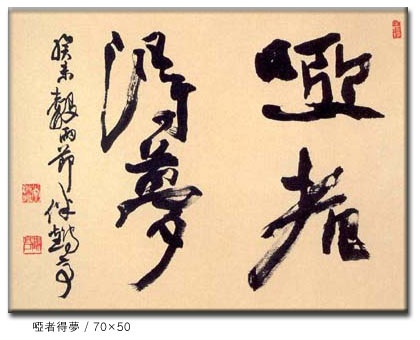 啞者
得夢
癸未穀雨節
啞者得夢 / 70×50